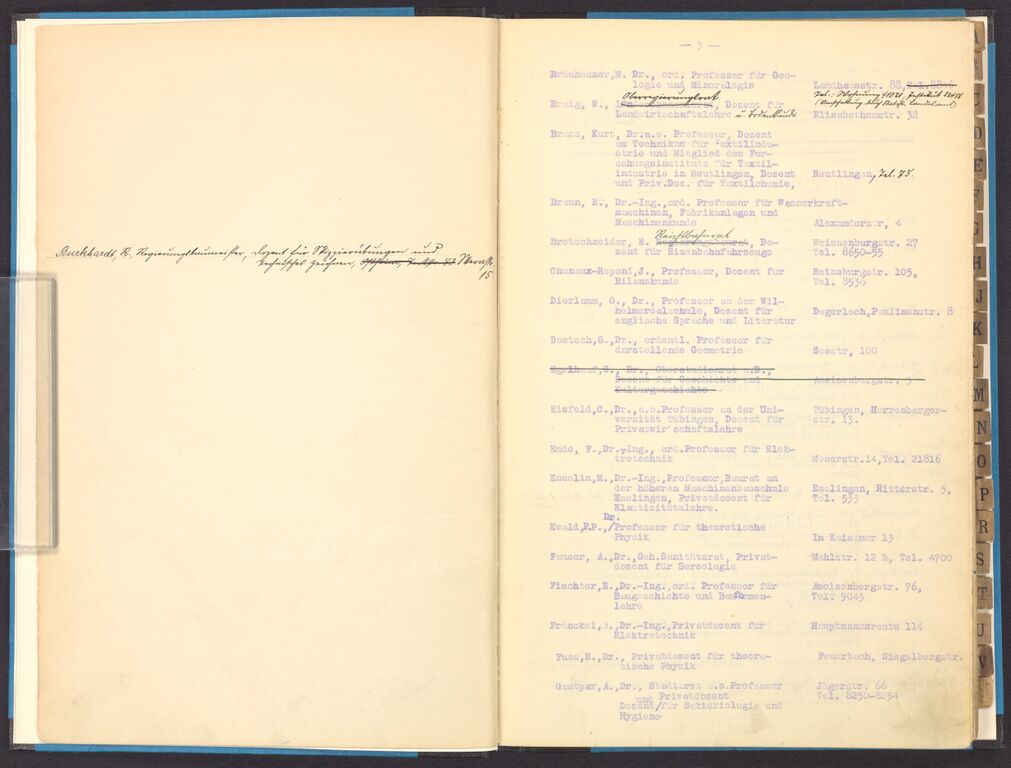 Burkhardt R. Regierungsbaumeister, Dozent für Skizzierübungen und
technisches Zeichnen,
15.
— 3 —
Bräuhäuser,M. Dr., ord. Professor für Geo-
logie und Mineralogie
Landhausstr. 88,Tel.8846
Tel.: Wohnung 41021, Institut 22458
Oberregierungsrat
Braig, W., Dozent für
Landwirtschaftslehre u. Bodenkunde
Elisabethenstr. 32
Brass, Kurt, Dr.a.o. Professor, Dozent
am Technikum für Textilindu-
strie und Mitglied des For-
schungsinstituts für Textil-
industrie in Reutlingen, Dozent
und Priv.Doz. für Textilchemie,
Reutlingen, Tel. 75.
Braun, E., Dr.-Ing.,ord. Professor für Wasserkraft-
maschinen, Fabrikanlagen und
Maschinenkunde
Alexanderstr, 4
Reichsbahnrat
Bretschneider, E. Regierungsbaurat, Do-
zent für Eisenbahnfahrzeuge
Weissenburgstr. 27
Tel. 8650-55
Chanaux-Repond,J., Professor, Dozent für
Bilanzkunde
Reinsburgstr. 105,
Tel. 8536
Dierlamm, G., Dr., Professor an der Wil-
helmsrealschule, Dozent für
englische Sprache und Literatur
Degerloch,Paulinenstr. 8
Doetsch,G.,Dr., ordentl. Professor für
darstellende Geometrie
Seestr, 100
Egelhaaf,G., Dr., Oberstudienrat a.D.,
Dozent für Geschichte und
Kulturgeschichte
Ameisenbergstr. 3
Eisfeld,C.,Dr.,a.o.Professor an der Uni-
versität Tübingen, Dozent für
Privatwirtschaftslehre
Tübingen, Herrenberger-
str. 13.
Emde, F.,Dr.-Ing., ord.Professor für Elek-
trotechnik
Moserstr.14,Tel. 21816
Ensslin,M.,Dr.-Ing.,Professor,Baurat an
der höheren Maschinenbauschule
Esslingen, Privatdozent für
Elastizitätslehre.
Esslingen, Ritterstr. 5,
Tel. 553
Dr.
Ewald,P.P.,/Professor für theoretische
Physik
Im Kaisemer 13
Fauser, A.,Dr.,Geh.Sanitätsrat, Privat-
dozent für Sereologie
Mohlstr. 12 b, Tel. 4700
Fiechter,E.,Dr.-Ing.,ord. Professor für
Baugeschichte und Bauformen-
lehre
Ameisenbergstr. 76,
Tel. 9043
Fränckel,A.,Dr.-Ing.,Privatdozent für
Elektrotechnik
Hauptmannsreute 114
Fues,E.,Dr., Privatdozent für theore-
tische Physik
Feuerbach, Siegelbergstr.
Gastpar,A.,Dr., Stadtarzt a.o.Professor
und Privatdozent
Dozent/für Bakteriologie und
Hygiene
Jägerstr. 66
Tel. 8250-8254
A
C
D
E
F
G
H
J
K
L
M
N
O
P
R
S
T
U
V